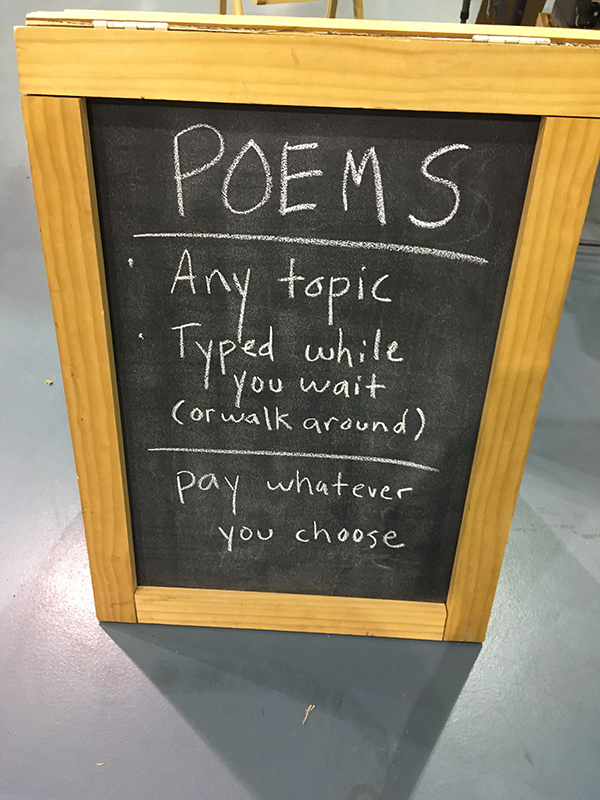 POEMS
· Any topic
· Typed while
you wait
(or walk around)
pay whatever
you choose